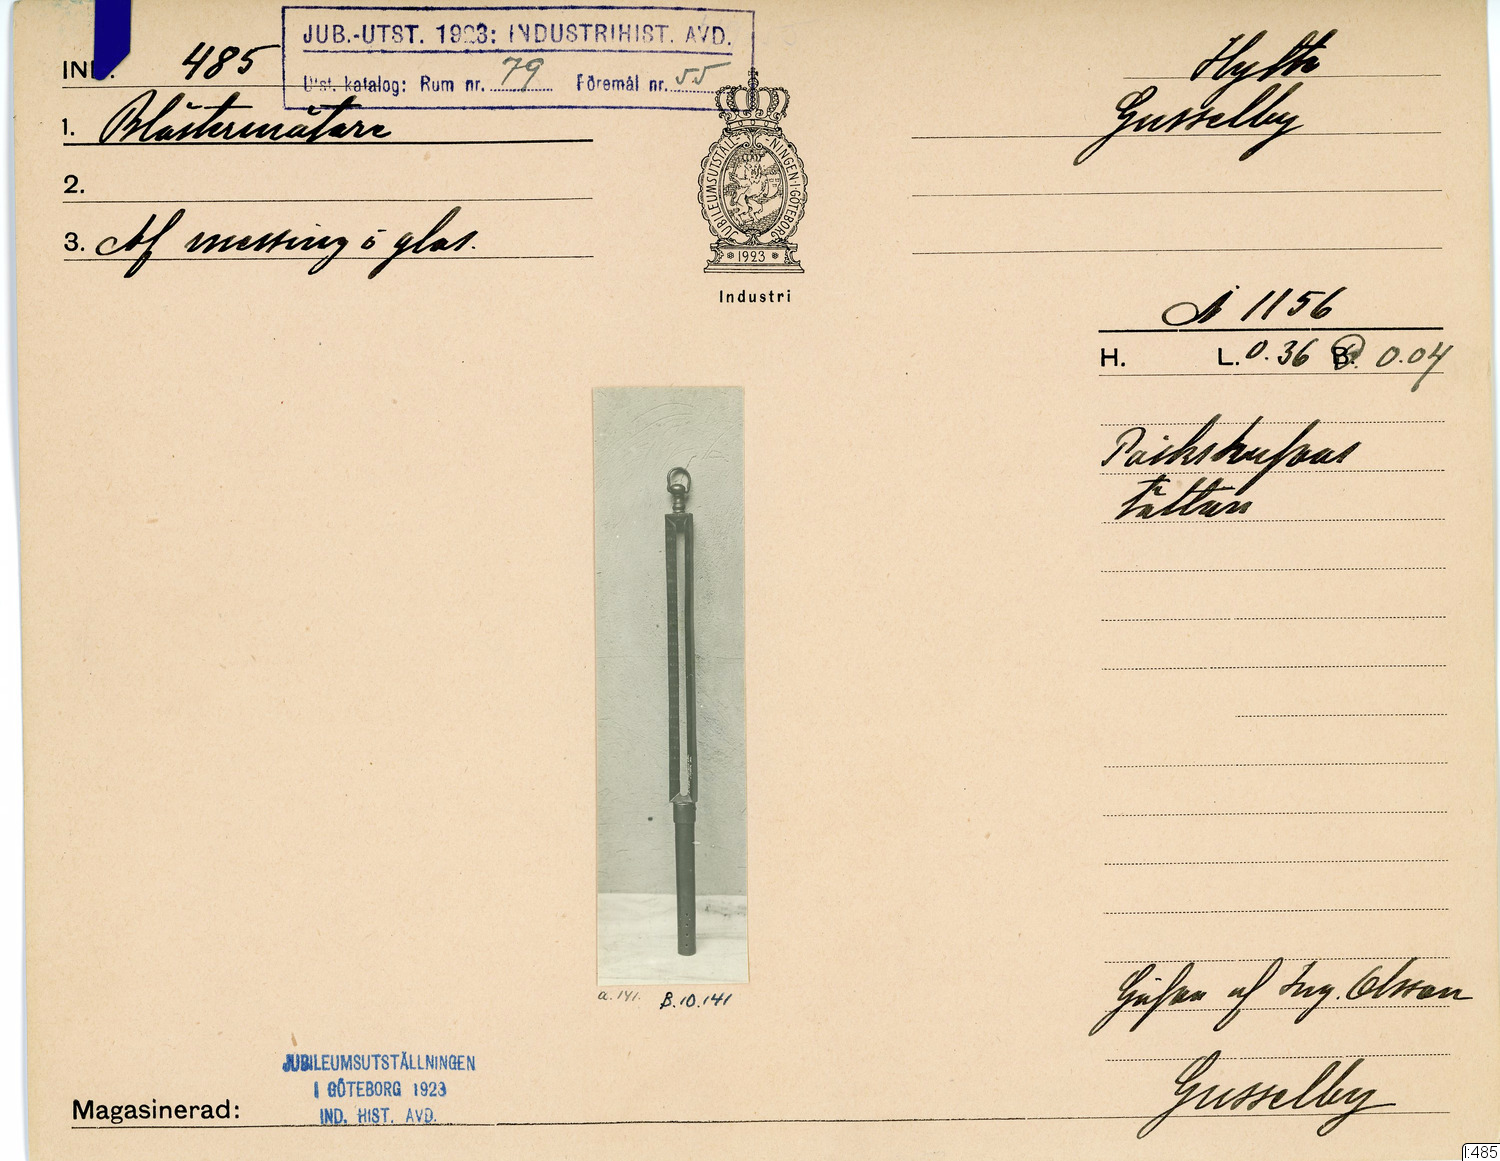 JUB.-UTST. 1923: INDUSTRIHIST. AVD.
Utst. katalog: Rum nr. 79 Föremål nr. 55
485
1. Blästermätare
2.
3. Af messing o glas.
JUBILEUMSUTSTÄLLNINGEN I GÖTEBORG
1923
Industri
Hytte
Gusselby
1156
H. L. 0.36 0.04
Gåfva af Ing. Olsson
Gusselby
a. 141. B.10.141
JUBILEUMSUTSTÄLLNINGEN
I GÖTEBORG 1923
IND. HIST. AVD.
Magasinerad:
I:485